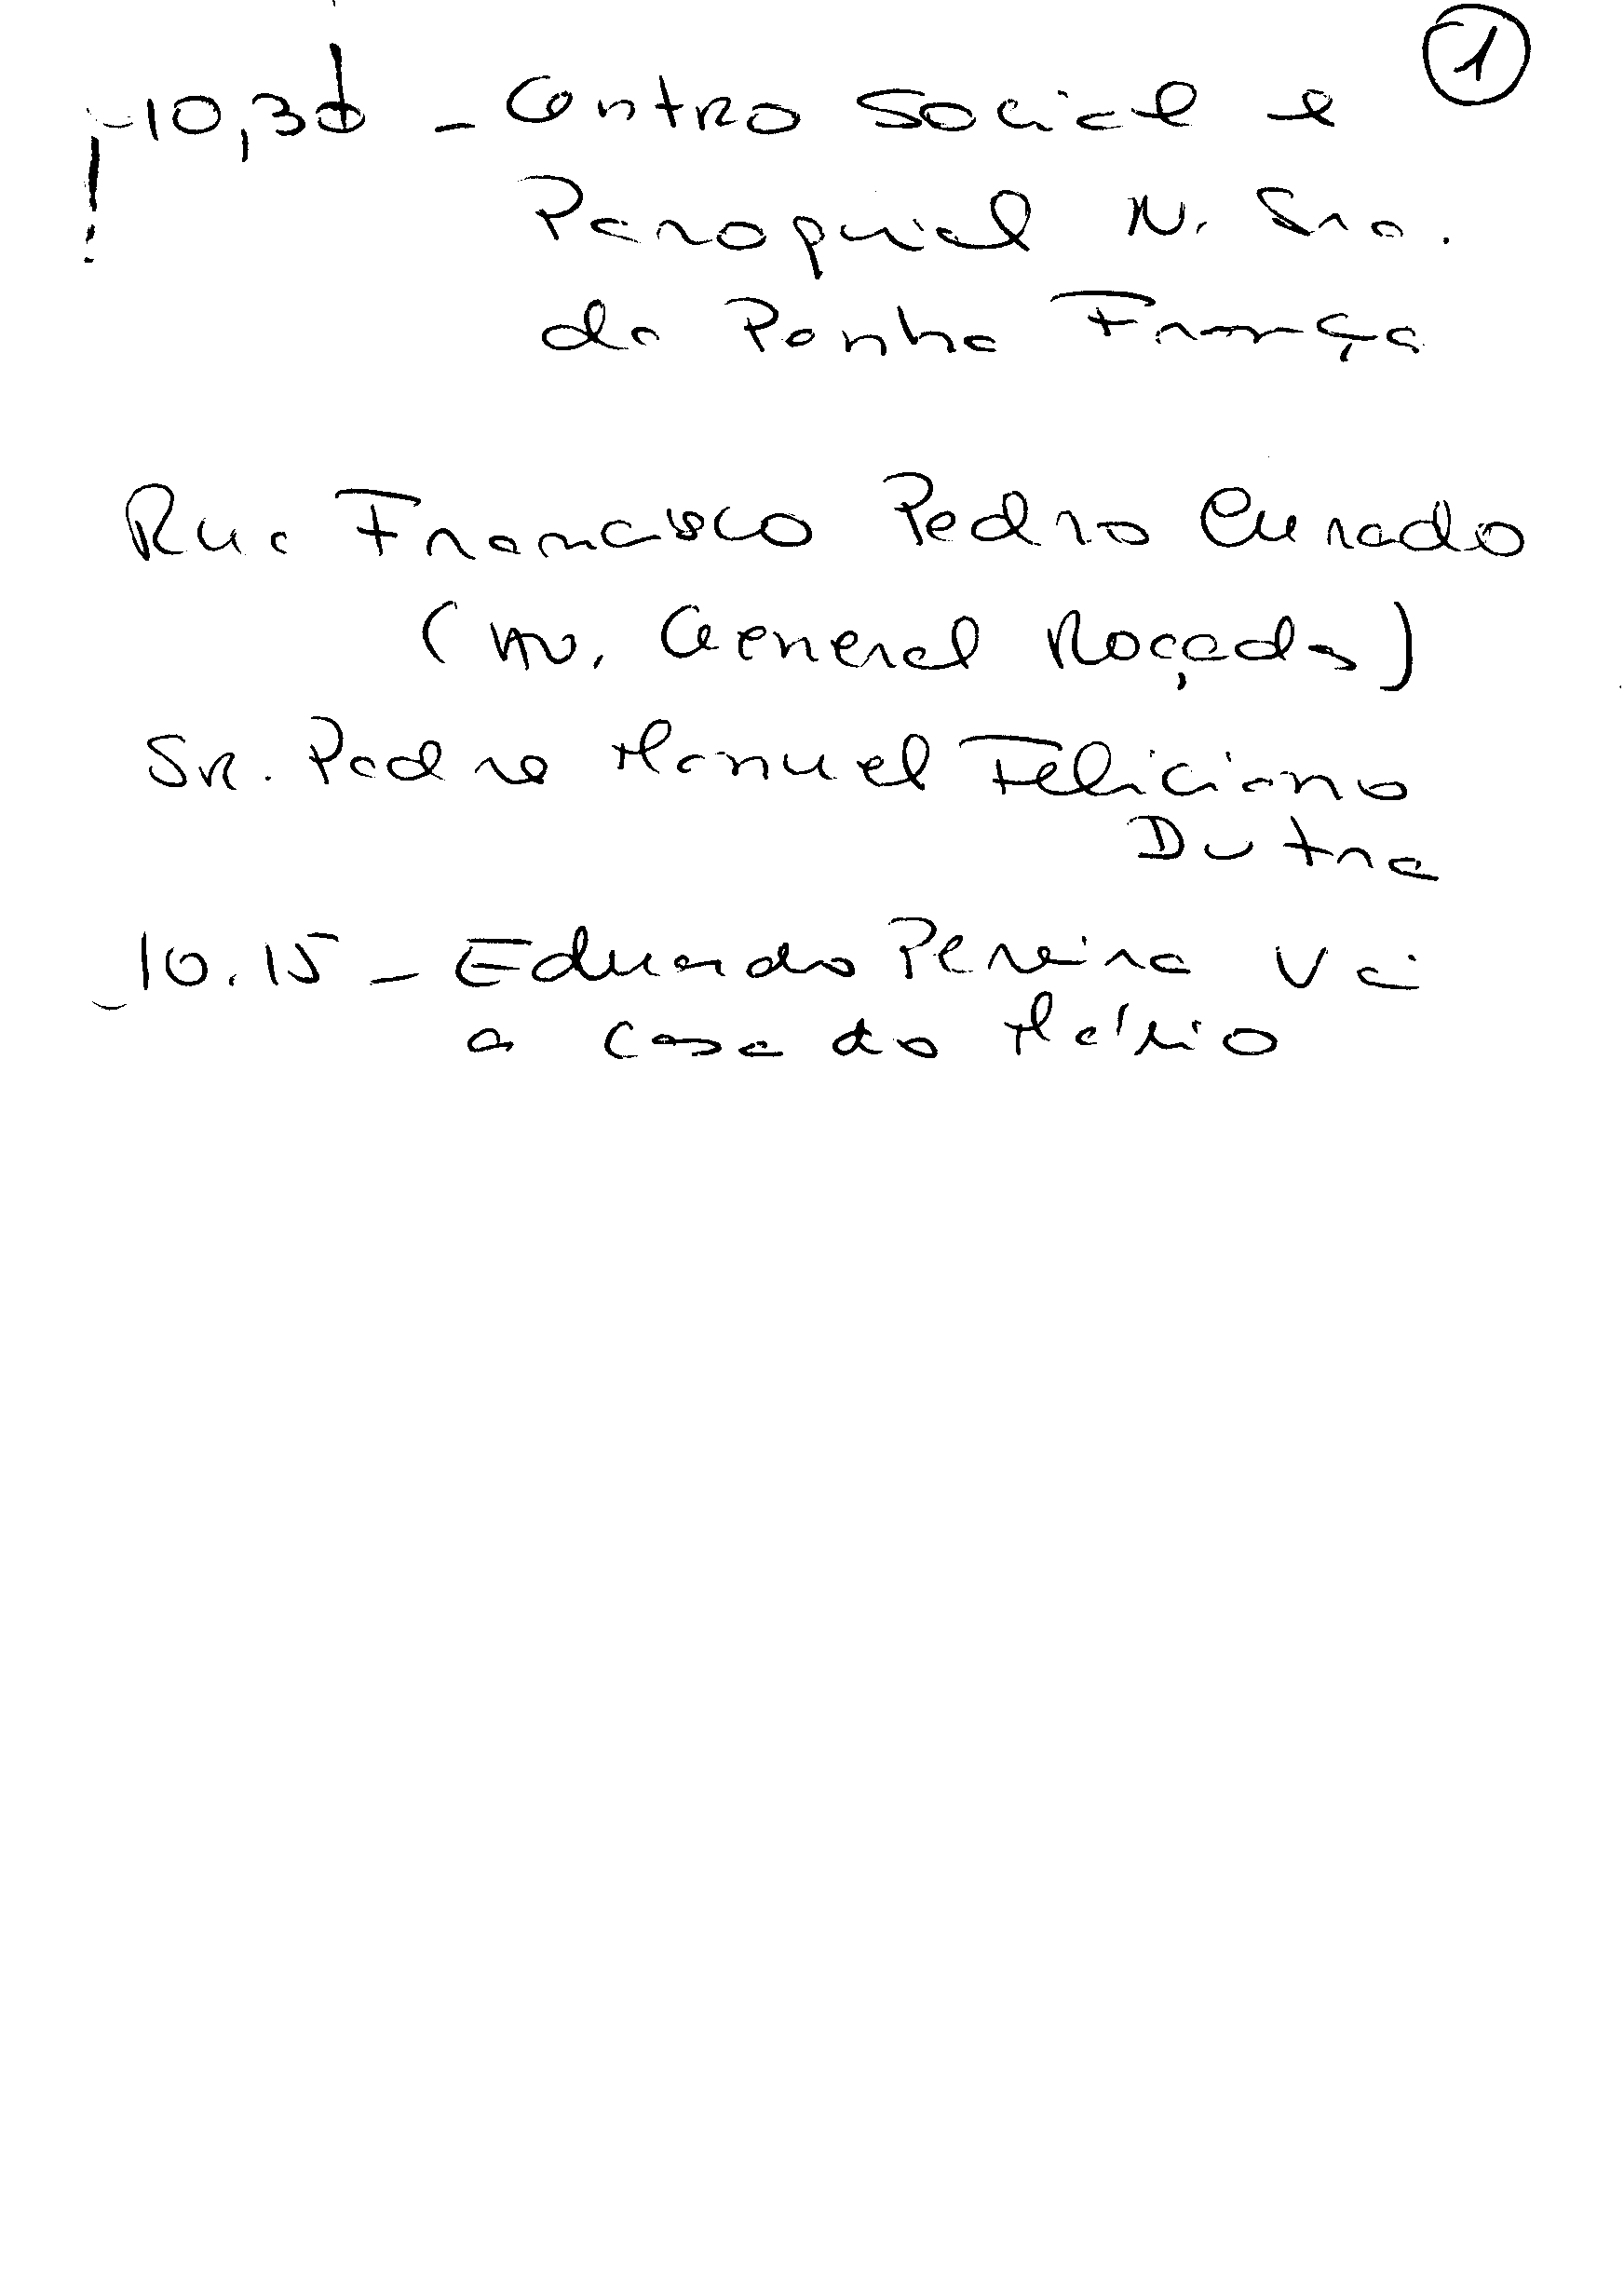 1
-10,30 - Centro Social e
Paroquial N. Sra.
da Penha França
Rua Francisco Pedro Curado
(Av. General Roçadas)
Sr. Padre Manuel Feliciano
Dutra
-10.15 - Eduardo Pereira vai
a casa do Mário